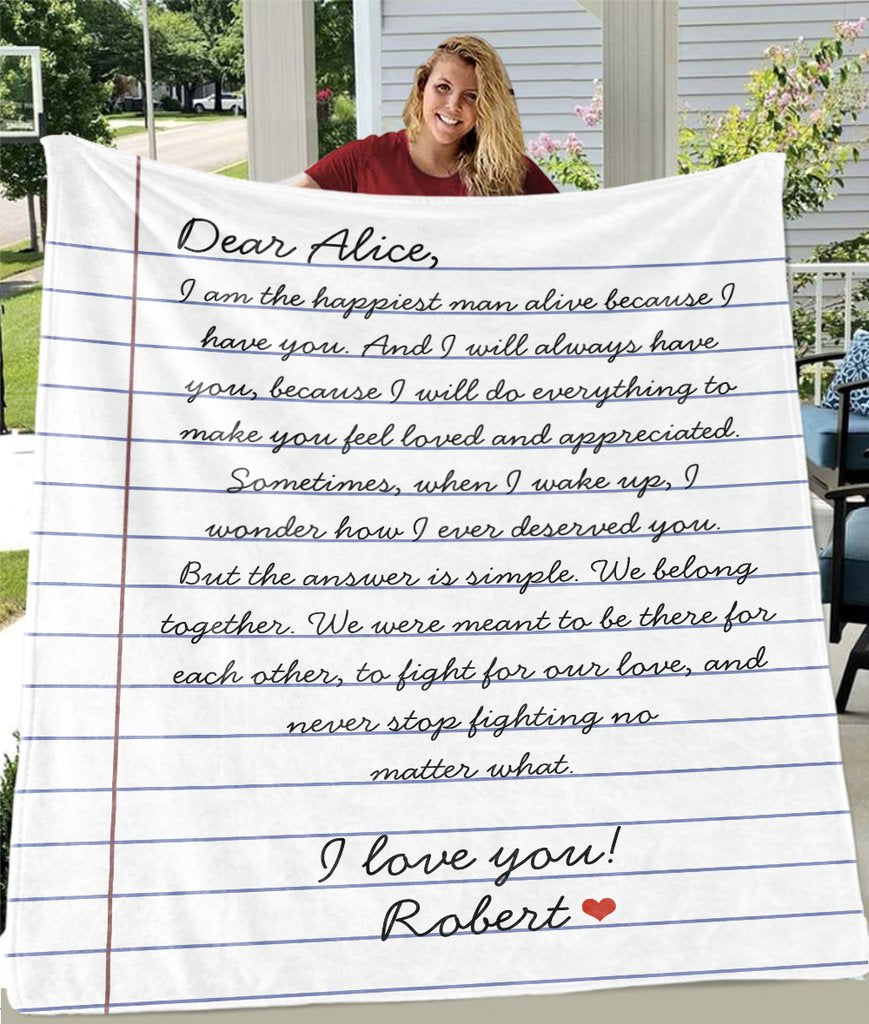 Dear Alice,
I am the happiest man alive because I
have you. And I will always have
you, because I will do everything to
make you feel loved and appreciated.
Sometimes, when I wake up, I
wonder how I ever deserved you.
But the answer is simple. We belong
together. We were meant to be there for
each other, to fight for our love, and
never stop fighting no
matter what.
I love you!
Robert